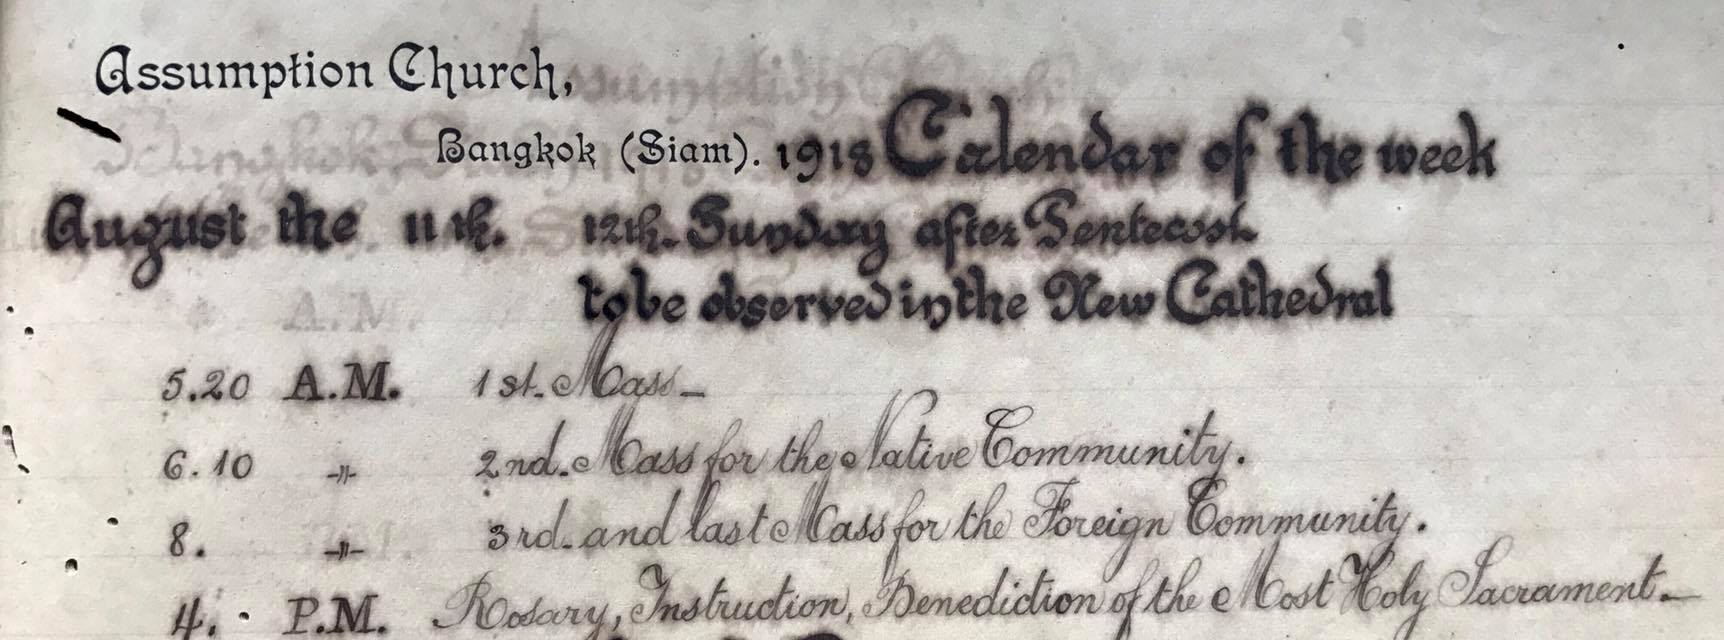 Assumption Church,
Bangkok (Siam). 1918 Calendar of the week
August the 11th. 12th. Sunday after Pentecost
to be observed in the New Cathedral
5.20 A.M. 1st. Mass_
6.10 -〃- 2nd. Mass for the Native Community.
8. -〃- 3rd. and last Mass for the Foreign Community.
4. P.M. Rosary, Instruction, Benediction of the Most Holy Sacrament._